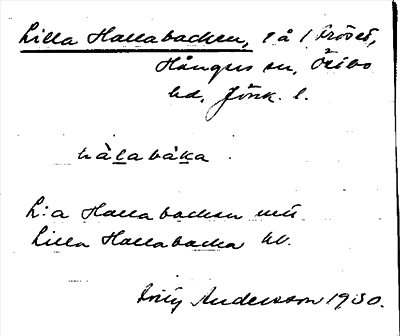 Lilla Hallabacken, l å l Fröset,
Hångers sn, Östbo
hd, Jönk. l.
hàlabàka
L:a Hallabacken mt.
Lilla Hallabacka kv.
Andersson 1930.